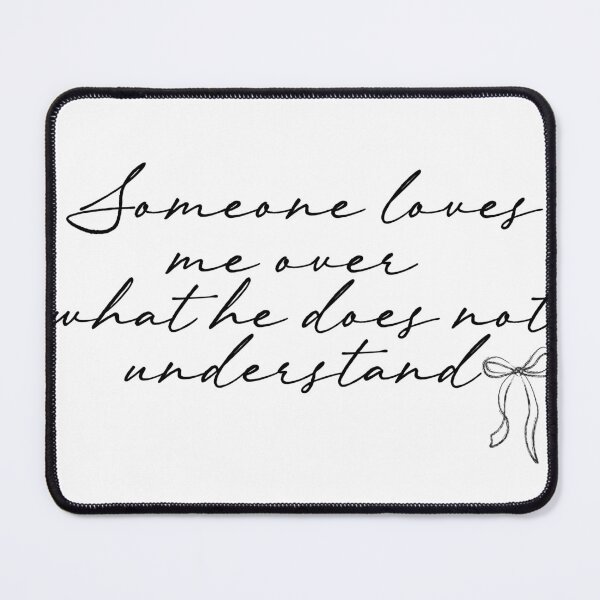 Someone loves
me over
what he does not
understand